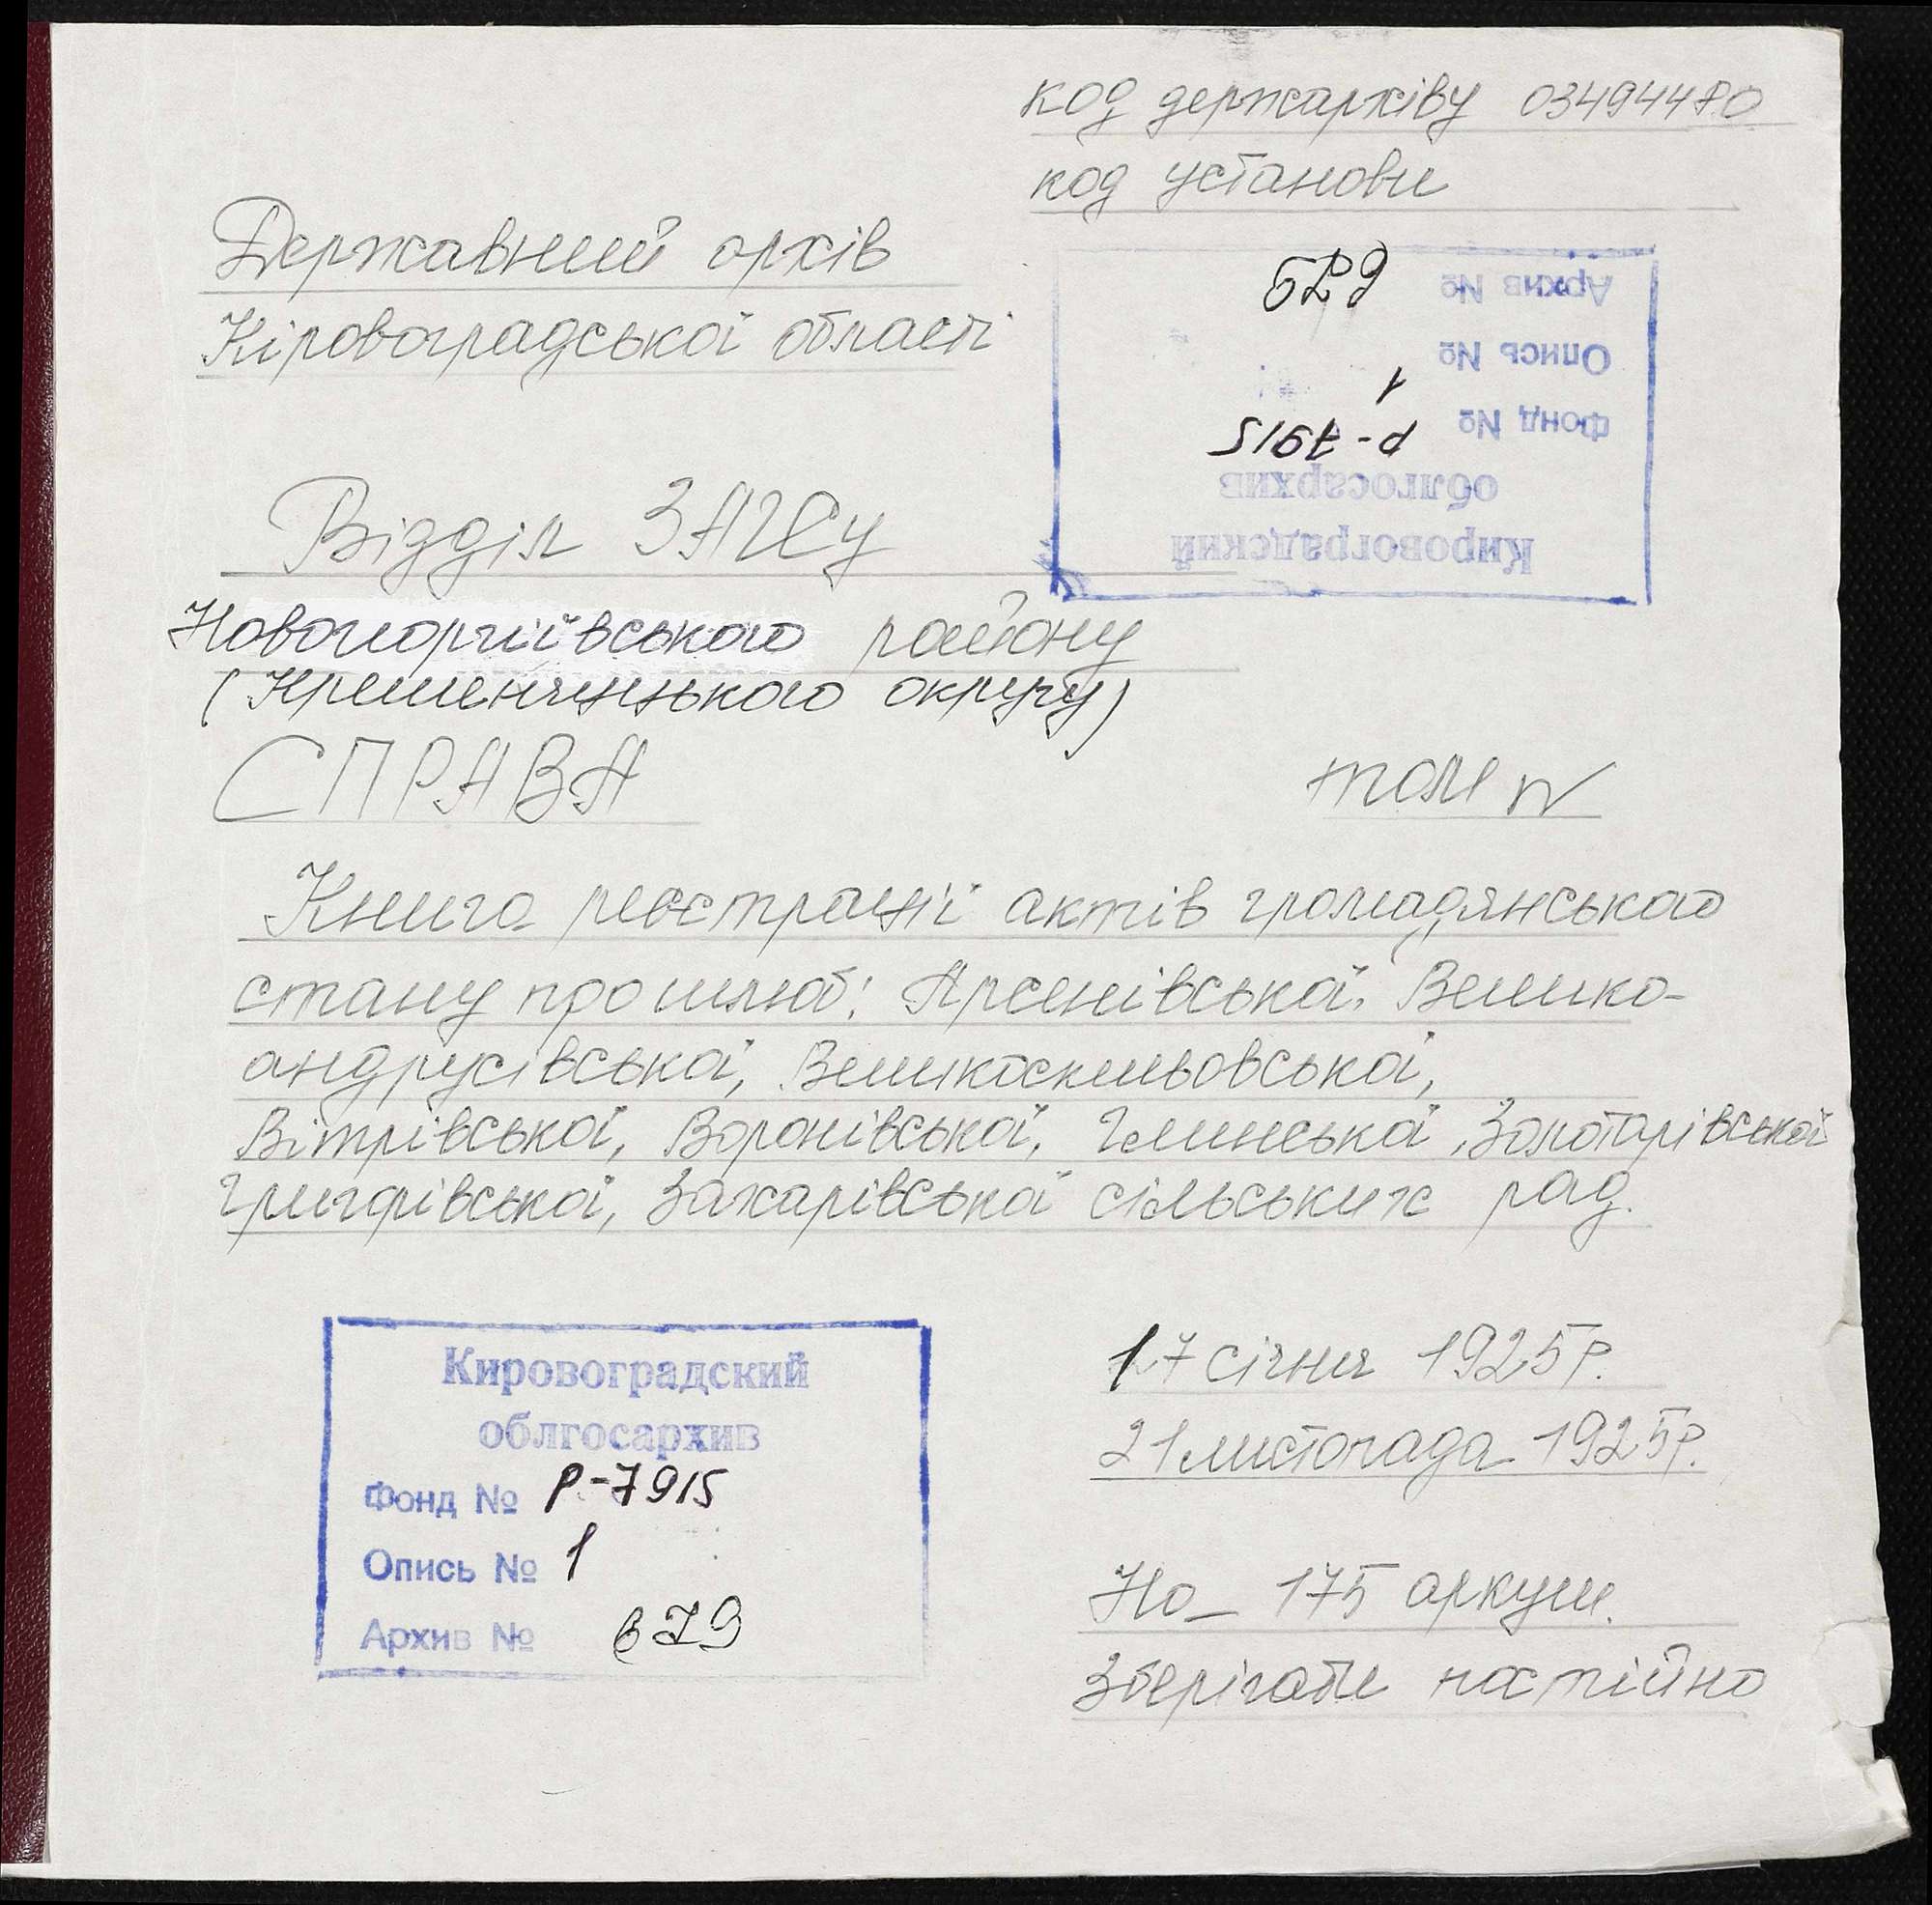 код держархіву 03494470
код установи
Державний архів
Кіровоградської області
629
Архив №
Опись №
1
Фонд №
Р-7915
облгосархив
Кировоградский
Відділ ЗАГСу
Новогеоргіївського району
(Кременчуцького округу)
СПРАВА том №
Книга реєстрації актів громадянського
стану про шлюб: Арсенівської, Велико-
андрусівської, Великоскельовської,
Вітрівської, Воронівської, Глинської, Золотарівської
Григорівської, Захарівської сільських рад.
Кировоградский
облгосархив
Фонд № Р-7915
Опись № 1
Архив № 629
17 січня 1925р.
21 листопада 1925р.
На 175 аркуш.
Зберігати постійно